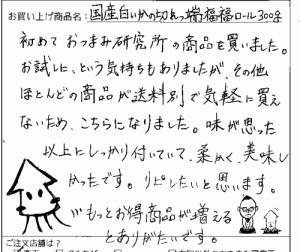 お買い上げ商品名：国産白いかの切れっ端福福ロール300g
初めておつまみ研究所の商品を買いました。
お試しに、という気持ちもありましたが、その他
ほとんどの商品が送料別で気軽に買え
ないため、こちらになりました。味が思った
以上にしっかり付いていて、柔かく、美味し
かったです。リピしたいと思います。
※もっとお得商品が増える
とありがたいです。
ご注文店舗は？